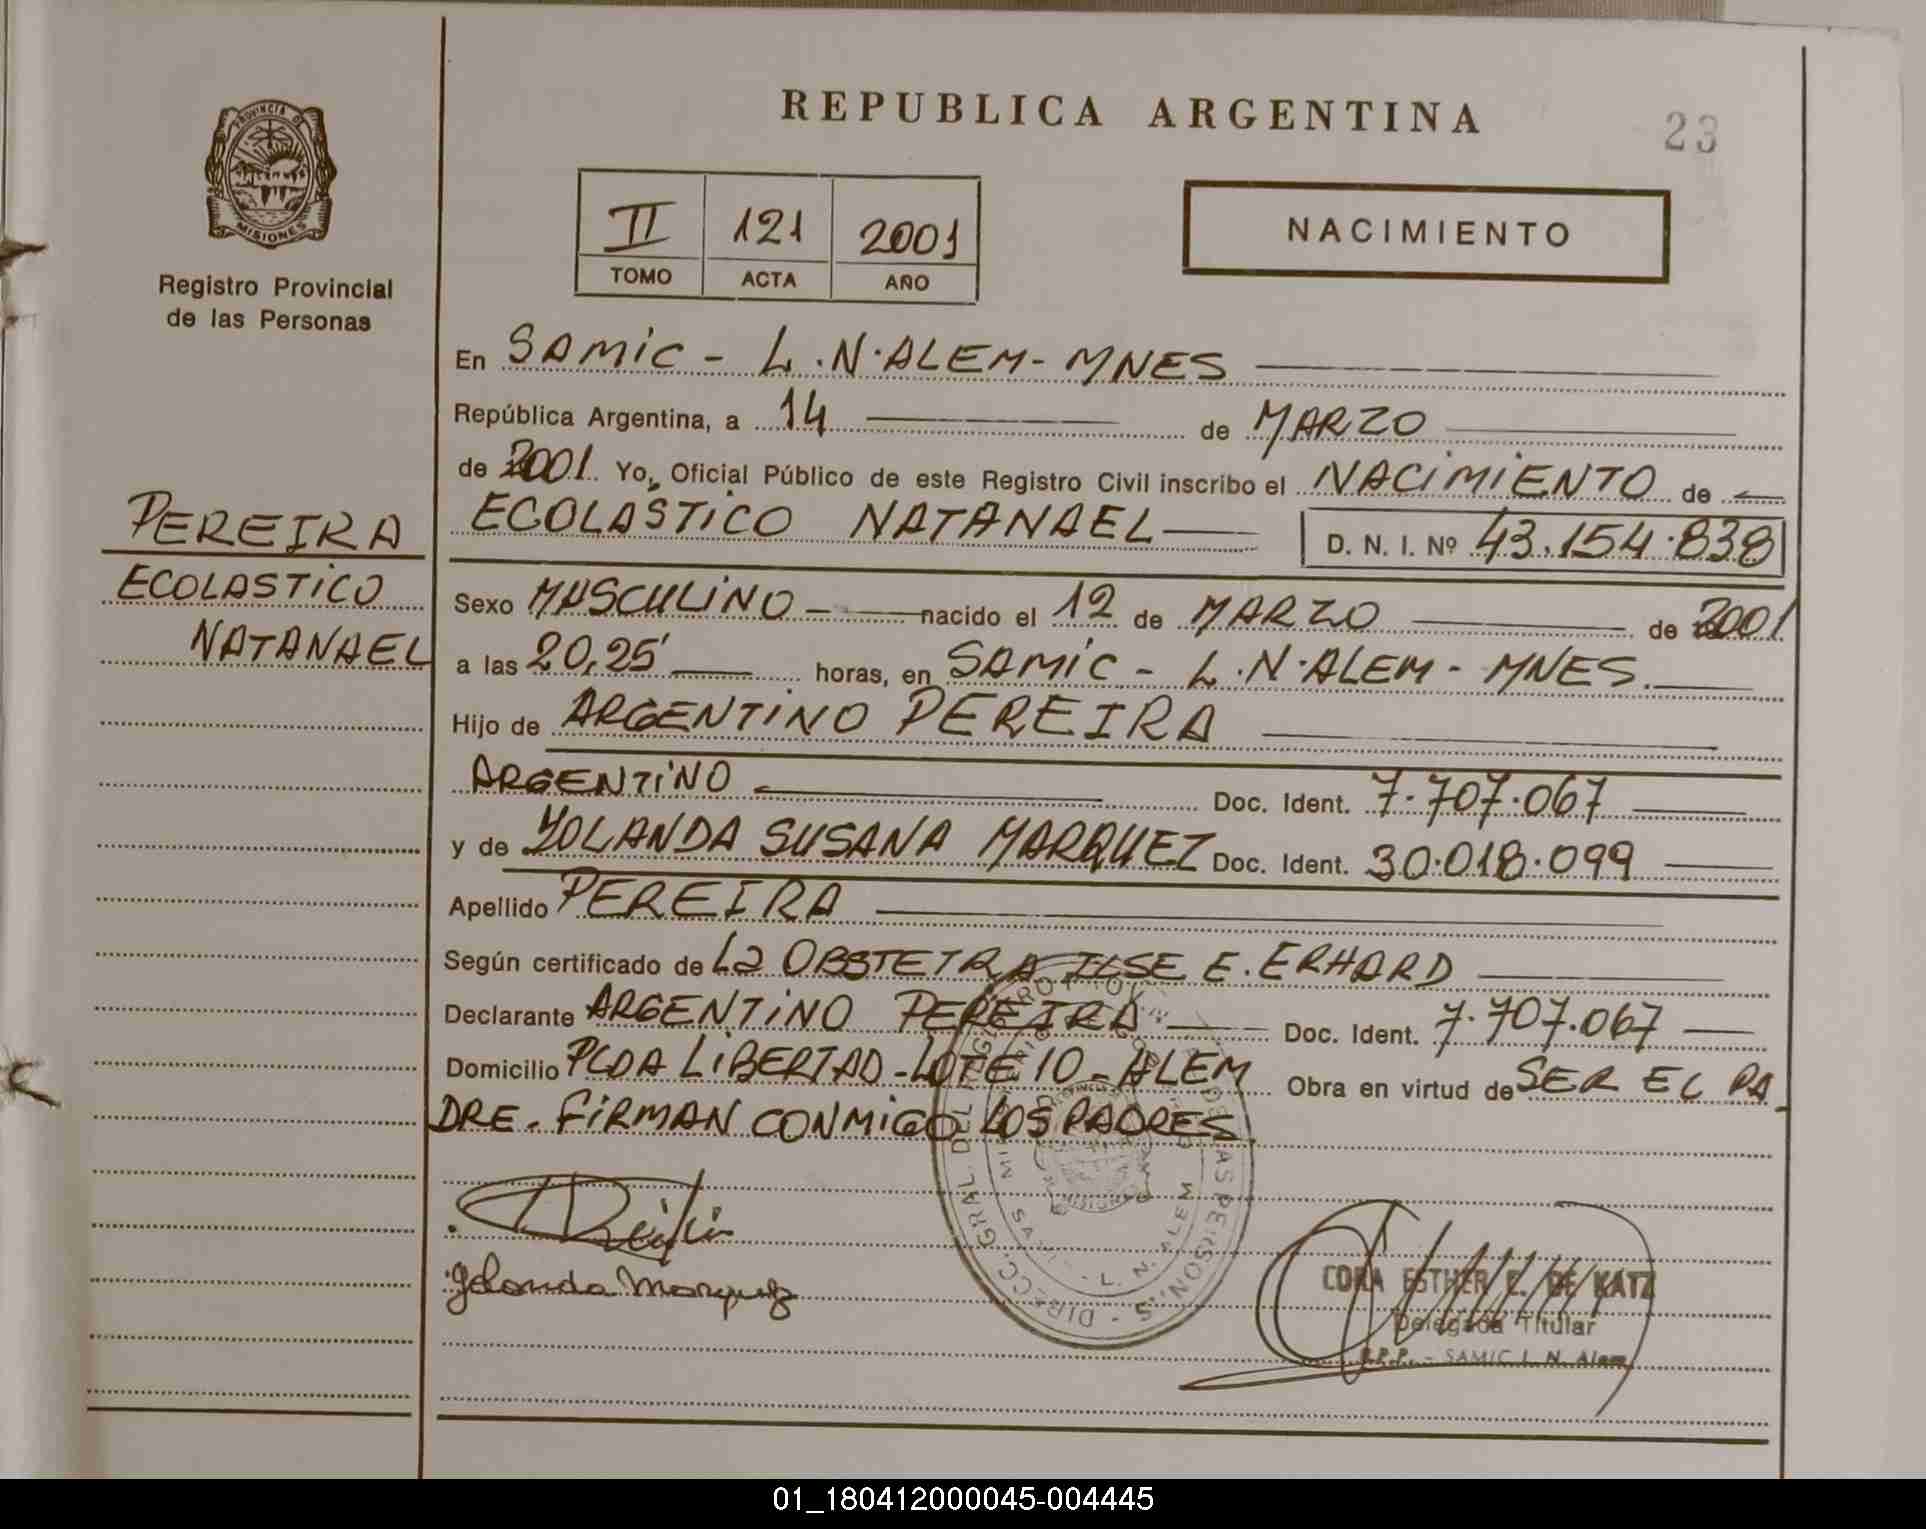 REPUBLICA ARGENTINA
23
PROVINCIA DE
MISIONES
Registro Provincial
de las Personas
II 121 2001
TOMO ACTA AÑO
NACIMIENTO
En SAMIC - L.N.ALEM - MNES
República Argentina, a 14 de MARZO
de 2001 Yo, Oficial Público de este Registro Civil inscribo el NACIMIENTO de
ECOLASTICO NATANAEL D. N. I. Nº 43.154.838
PEREIRA
ECOLASTICO
NATANAEL
Sexo MASCULINO nacido el 12 de MARZO de 2001
a las 20,25' horas, en SAMIC - L.N.ALEM - MNES.
Hijo de ARGENTINO PEREIRA
ARGENTINO Doc. Ident. 7.707.067
y de YOLANDA SUSANA MARQUEZ Doc. Ident. 30.018.099
Apellido PEREIRA
Según certificado de La OBSTETRA ILSE E. ERHARD
Declarante ARGENTINO PEREIRA Doc. Ident. 7.707.067
Domicilio PCDA LIBERTAD - LOTE 10 - ALEM Obra en virtud de SER EL PA
DRE. FIRMAN CONMIGO LOS PADRES.
Yolanda Marquez
L. N. ALEM
CORA ESTHER E. DE KATZ
Delegada Titular
R.P.P. - SAMIC L. N. Alem
01_180412000045-004445